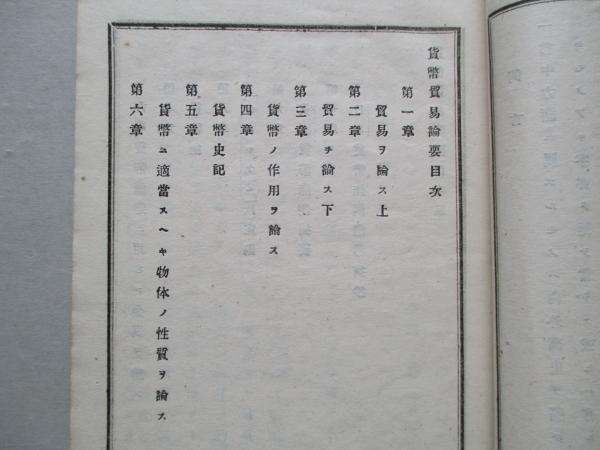 貨幣貿易論要目次
第一章
貿易ヲ論ス上
第二章
貿易ヲ論ス下
第三章
貨幣ノ作用ヲ論ス
第四章
貨幣史記
第五章
貨幣ニ適當スヘキ物体ノ性質ヲ論ス
第六章